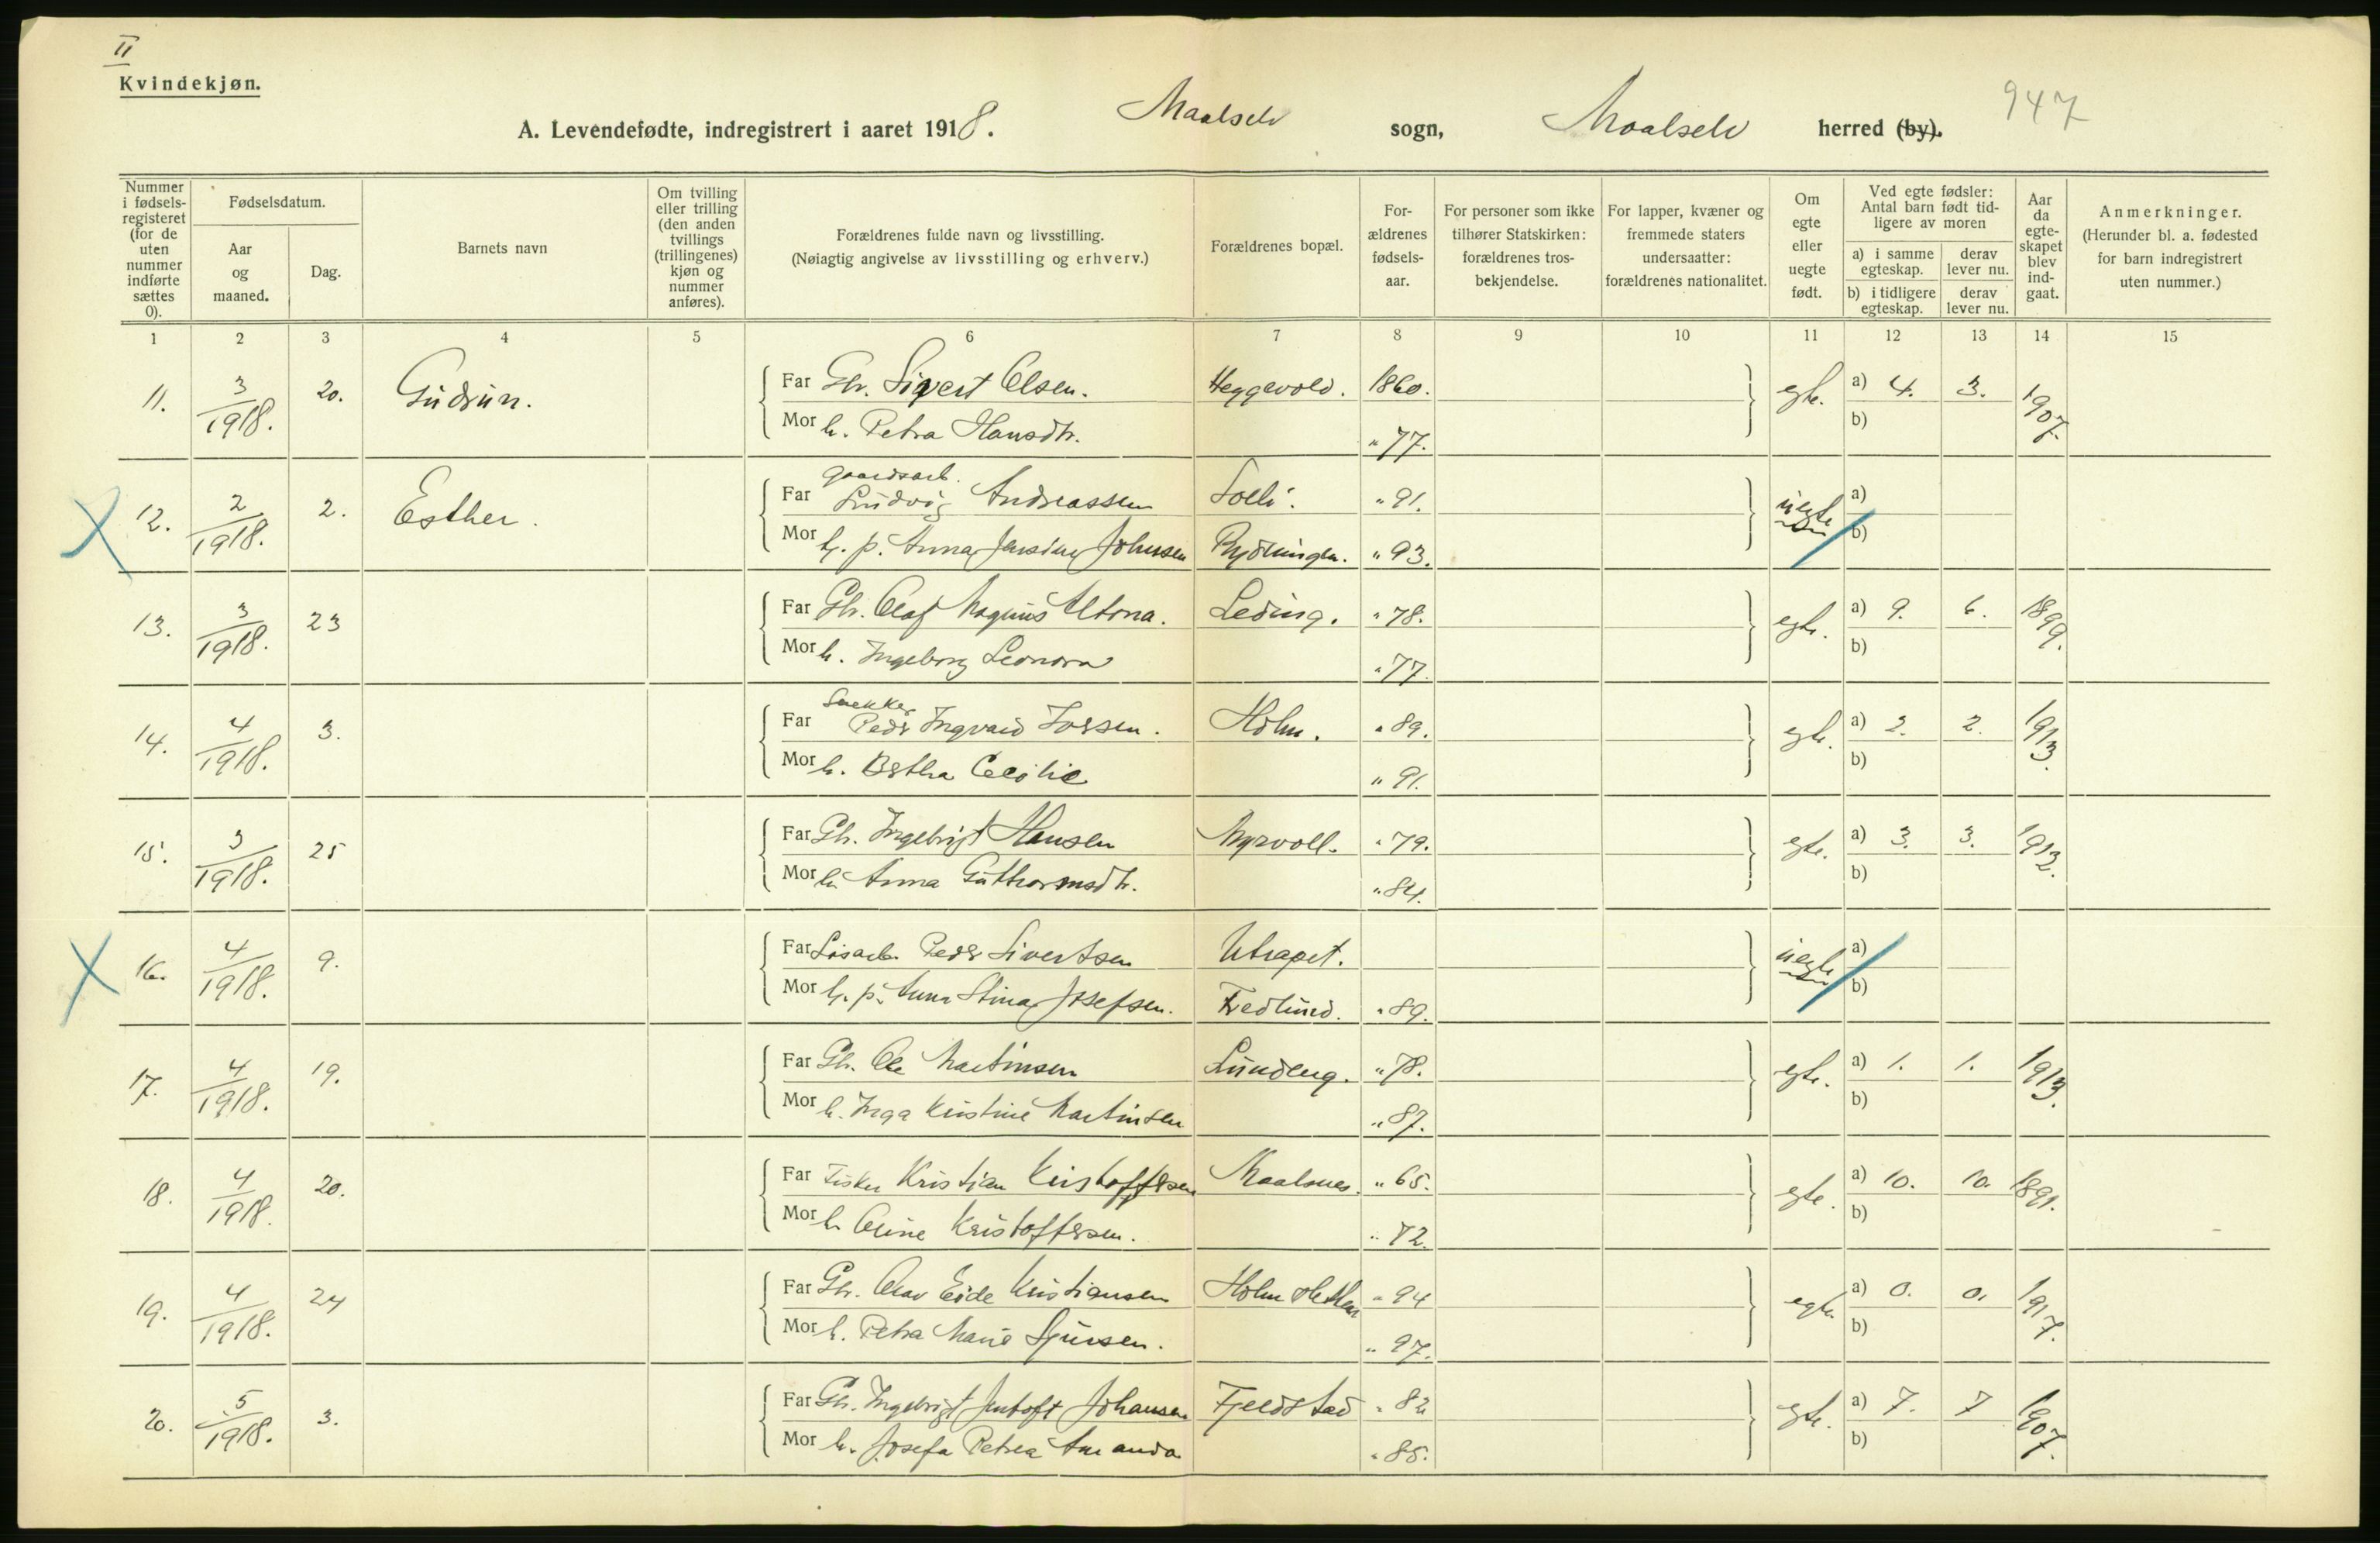 II
Kvindekjøn.
A. Levendefødte, indregistrert i aaret 1918. Maalselv sogn, Maalselv herred (by). 947
Nummer i fødsels-registeret (for de uten nummer indførte sættes 0).
Fødselsdatum.
Aar og maaned.
Dag.
Barnets navn
Om tvilling eller trilling (den anden tvillings (trillingenes) kjøn og nummer anføres).
Forældrenes fulde navn og livsstilling.
(Nøiagtig angivelse av livsstilling og erhverv.)
Forældrenes bopæl.
For-ældrenes fødsels-aar.
For personer som ikke tilhører Statskirken: forældrenes tros-bekjendelse.
For lapper, kvæner og fremmede staters undersaatter: forældrenes nationalitet.
Om egte eller uegte født.
Ved egte fødsler: Antal barn født tid-ligere av moren
a) i samme egteskap. derav lever nu.
b) i tidligere egteskap. derav lever nu.
Aar da egte-skapet blev ind-gaat.
Anmerkninger.
(Herunder bl. a. fødested for barn indregistrert uten nummer.)
1 2 3 4 5 6 7 8 9 10 11 12 13 14 15
11. 3/1918. 20. Gudrun. Far Gbr. Sivert Olsen. Heggevold. 1860. egte. a) 4. 3. 1907.
Mor h. Petra Hansdtr. " 77. b)
gaardsarb.
12. 2/1918. 2. Esther. Far Ludvig Andreassen Solli. " 91. uegte a)
Mor h. p. Anna Jensine Johnsen Rydningen. " 93. b)
13. 3/1918. 23 Far Gbr. Olaf Magnus Altona. Leding. " 78. egte. a) 9. 6. 1899.
Mor h. Ingeborg Leonora " 77. b)
Snekker
14. 4/1918. 3. Far Peder Ingvald Torsen. Holm. " 89. egte. a) 2. 2. 1913.
Mor h. Bertha Cecilie " 91. b)
15. 3/1918. 25 Far Gbr. Ingebrigt Hansen Myrvoll. " 79. egte. a) 3. 3. 1912.
Mor h. Anna Guthormsdtr. " 84. b)
16. 4/1918. 9. Far Løsarb. Peder Sivertsen Utrapet. uegte a)
Mor h. p. Anna Stina Josefsen. Fredlund. " 89. b)
17. 4/1918. 19. Far Gbr. Ole Martinsen Lundeng. " 78. egte. a) 1. 1. 1913.
Mor h. Inga Kristine Martinsen " 87. b)
18. 4/1918. 20. Far Fisker Kristian Kristoffersen Maalsnes. " 65. egte. a) 10. 10. 1891.
Mor h. Oline Kristoffersen. " 72. b)
19. 4/1918. 24 Far Gbr. Olav Eide Kristiansen Holm " 94 egte. a) 0. 0. 1917.
Mor h. Petra Marie Sjursen. " 97. b)
20. 5/1918. 3. Far Gbr. Ingebrigt Jentoft Johansen Fjeldstad " 82 egte. a) 7. 7 1907.
Mor h. Josefa Petrea Amanda " 85. b)